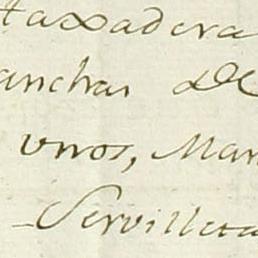 taxadera
anchas de
unos, Man
Servilleta